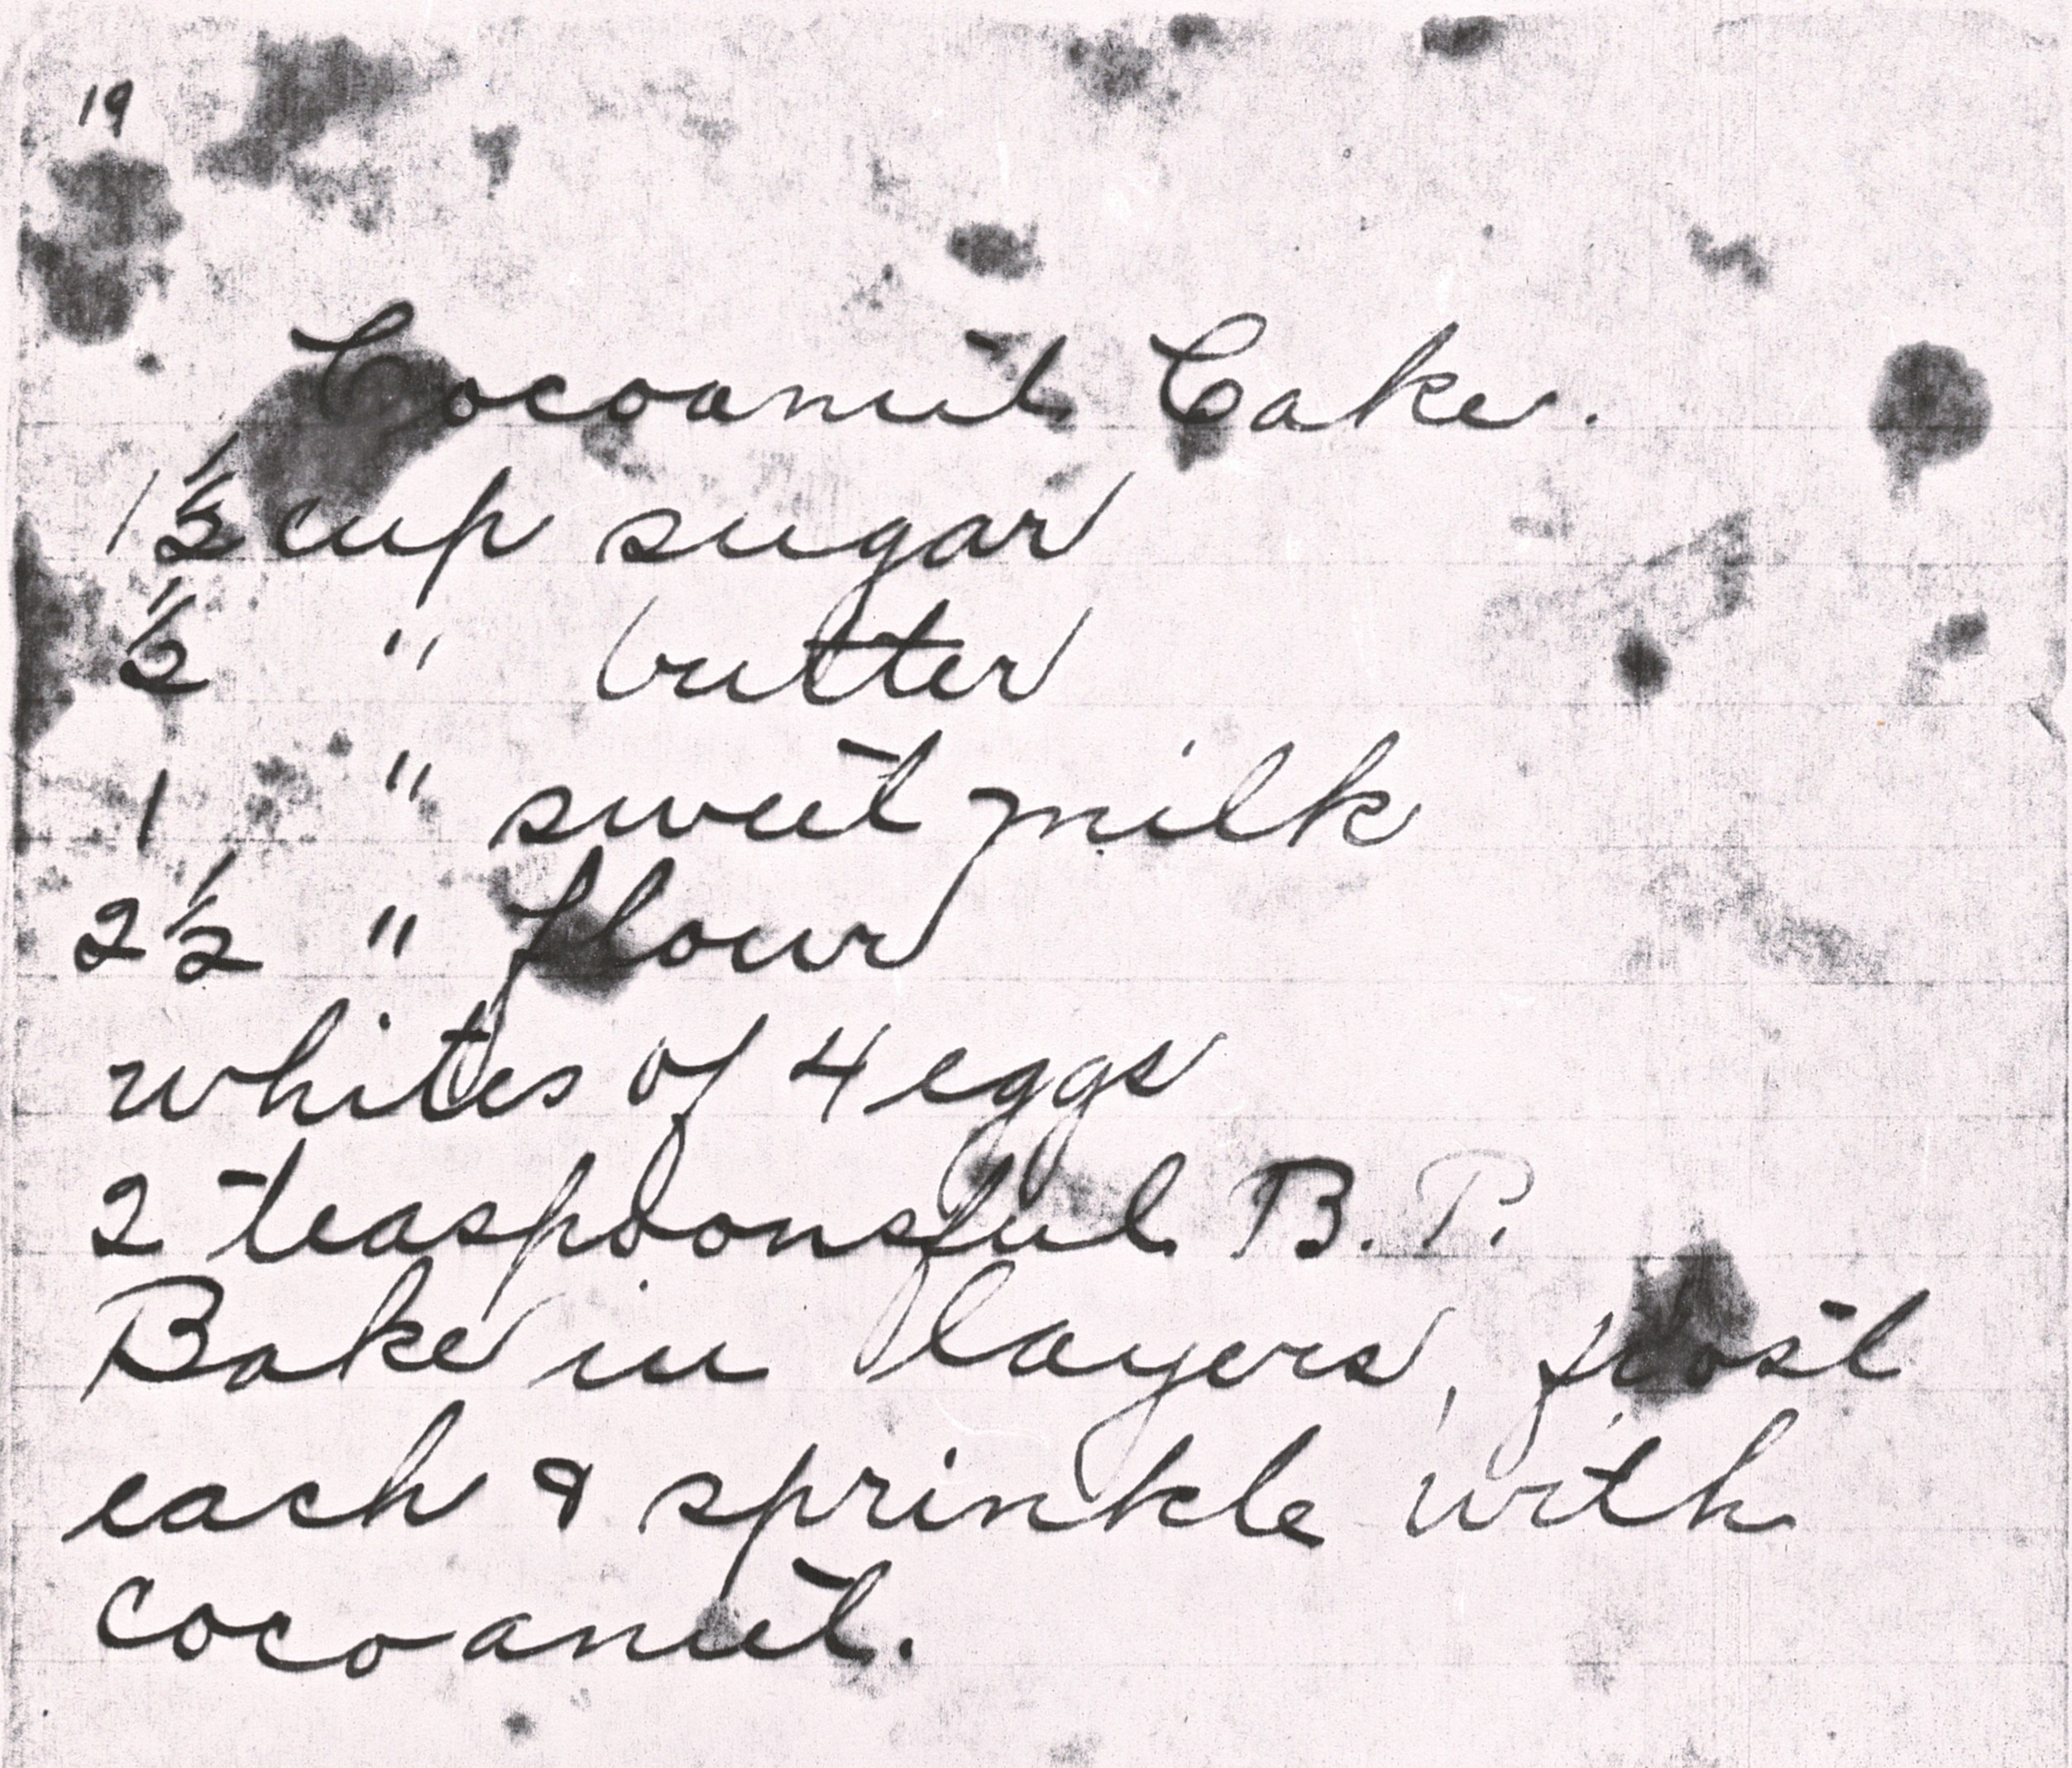 19
Cocoanut Cake.
1 1/2 cup sugar
1/2 " butter
1 " sweet milk
2 1/2 " flour
whites of 4 eggs
2 teaspoonsful B. P.
Bake in layers, frost
each & sprinkle with
cocoanut.